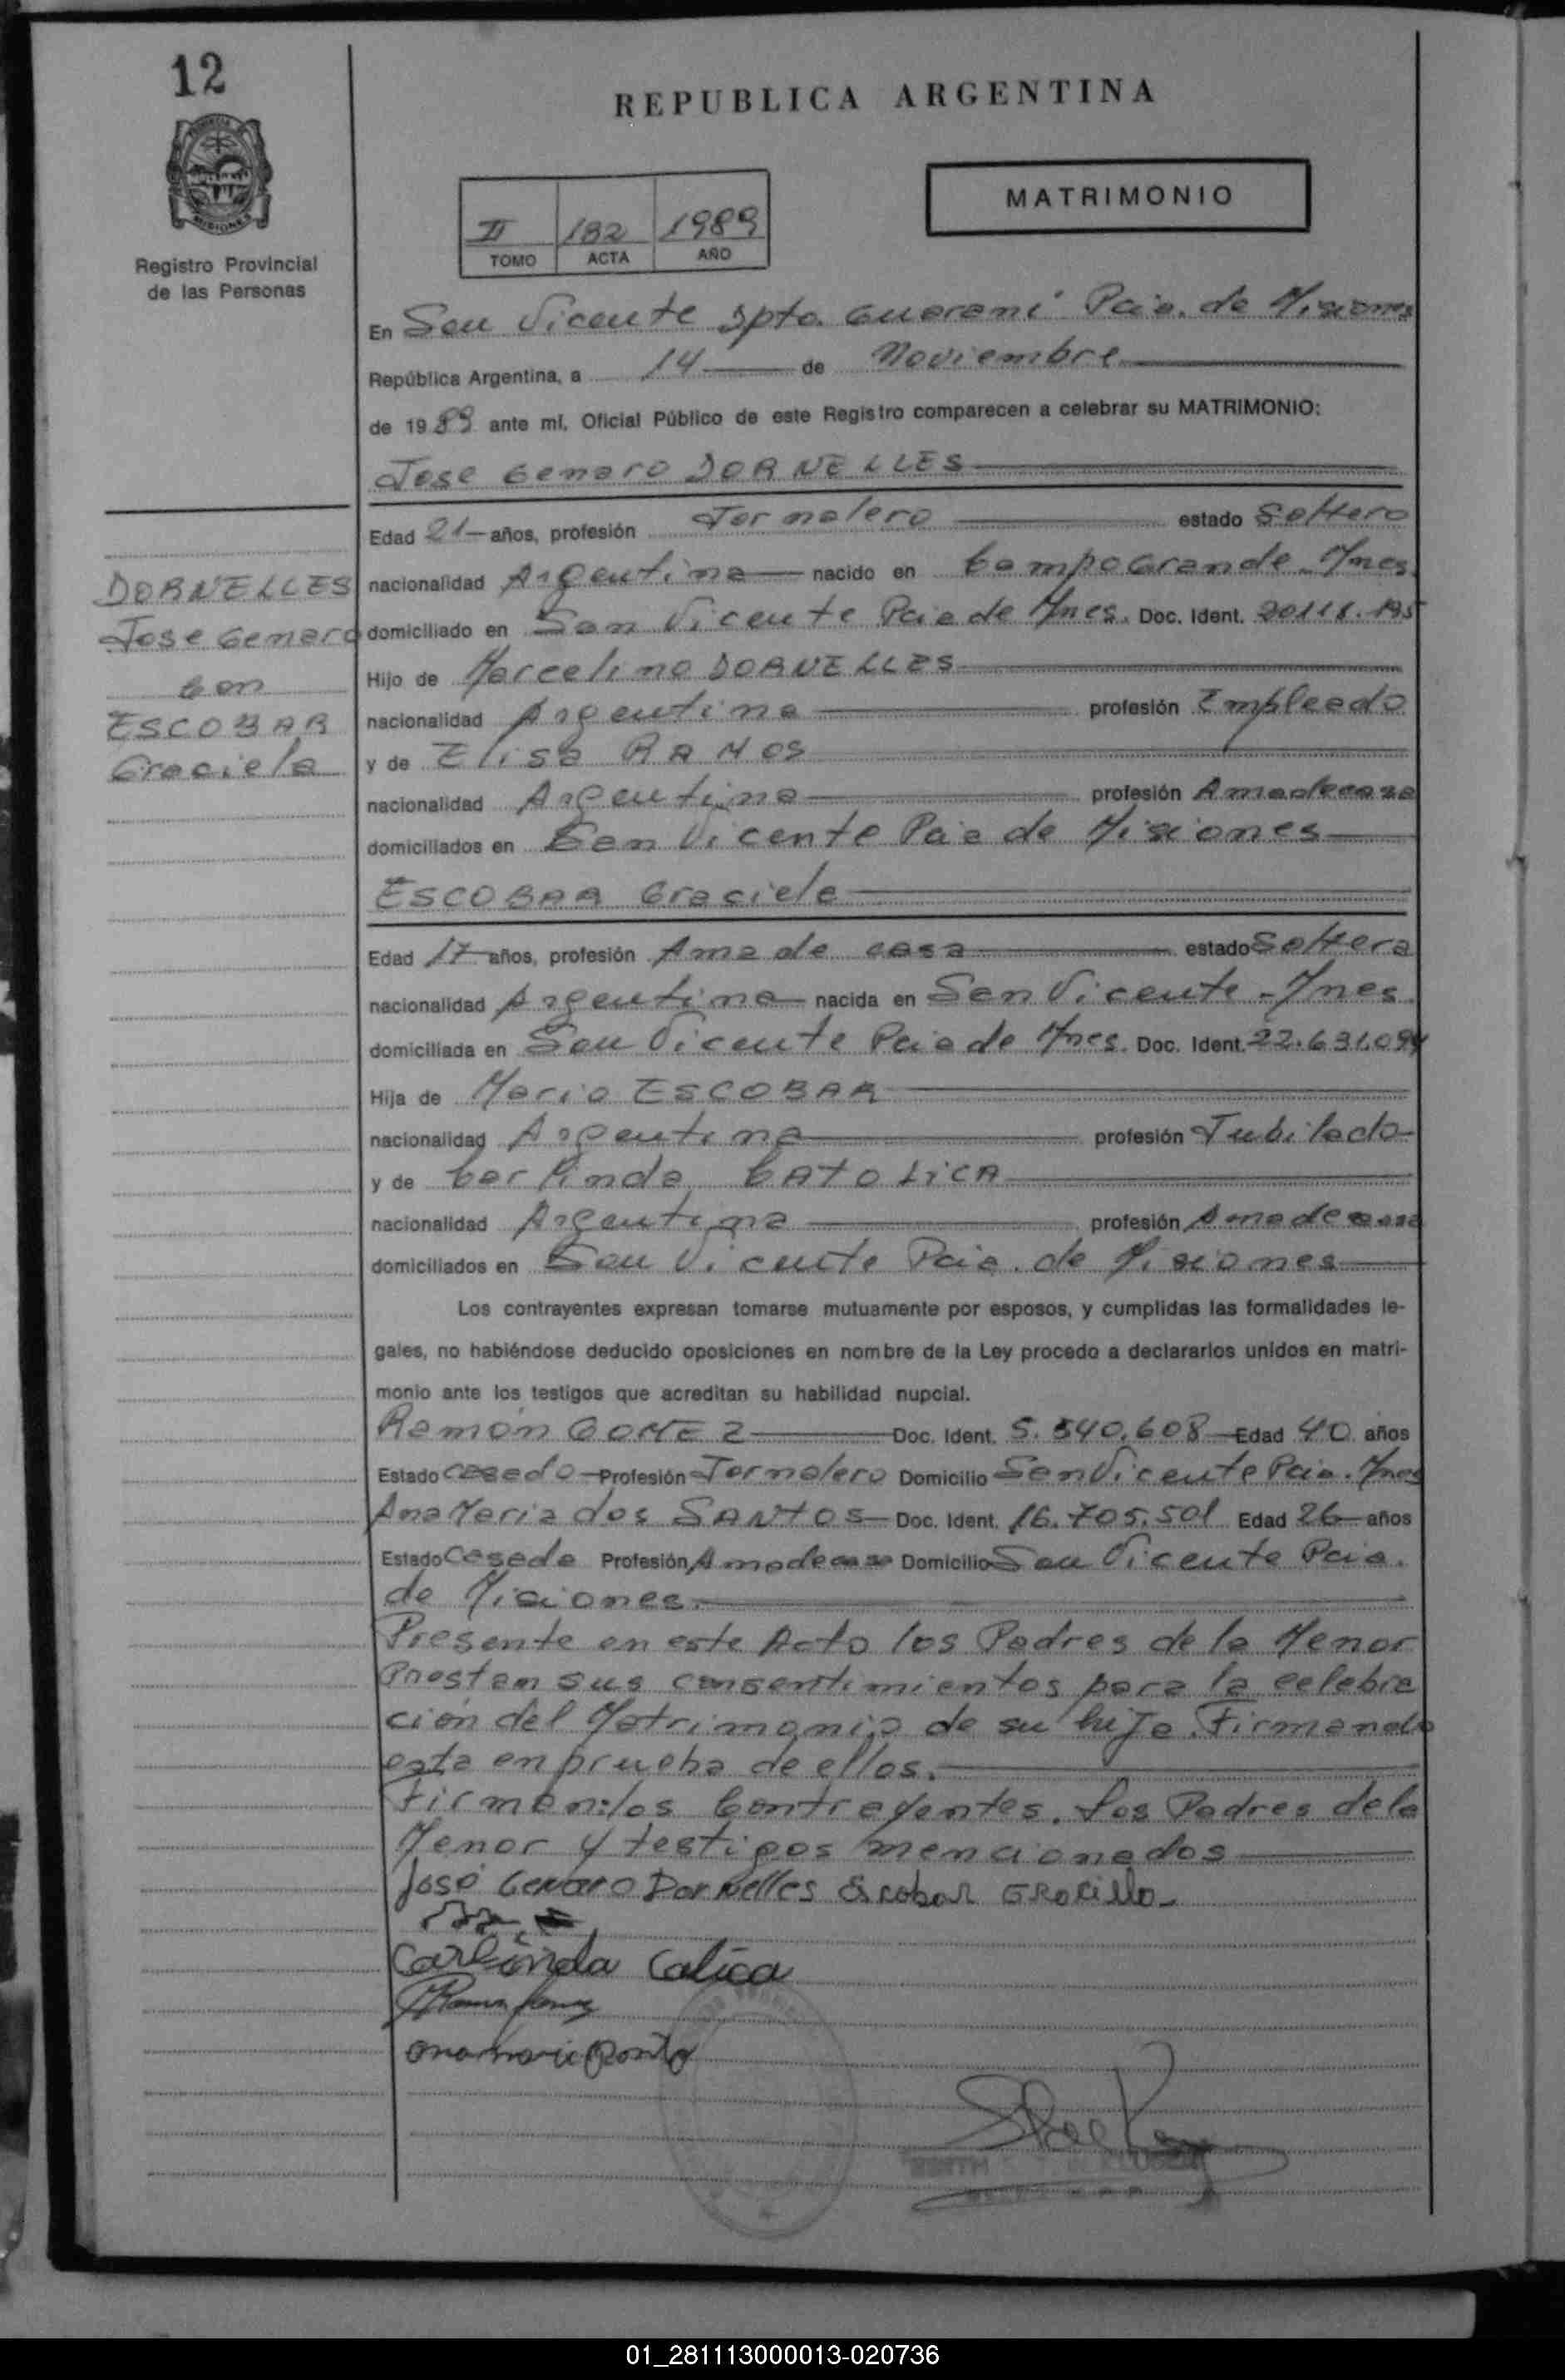 12
REPUBLICA ARGENTINA
MATRIMONIO
II 182 1989
TOMO ACTA AÑO
Registro Provincial
de las Personas
En San Vicente Dpto. Guarani Pcia. de Misiones
República Argentina, a 14 de Noviembre
de 1989 ante mí, Oficial Público de este Registro comparecen a celebrar su MATRIMONIO:
Jose Genaro DORNELLES
Edad 21 años, profesión Jornalero estado Soltero
nacionalidad Argentina nacido en Campo Grande. Mnes.
domiciliado en San Vicente Pcia de Mnes. Doc. Ident. 20118.195
Hijo de Marcelino DORNELLES
nacionalidad Argentina profesión Empleado
y de Elisa RAMOS
nacionalidad Argentina profesión Ama de casa
domiciliados en San Vicente Pcia de Misiones
DORNELLES
Jose Genaro
Con
ESCOBAR
Graciela
ESCOBAR Graciela
Edad 17 años, profesión Ama de casa estado Soltera
nacionalidad Argentina nacida en San Vicente - Mnes.
domiciliada en San Vicente Pcia de Mnes. Doc. Ident. 22.631.094
Hija de Mario ESCOBAR
nacionalidad Argentina profesión Jubilado
y de Carlinda CATOLICA
nacionalidad Argentina profesión Ama de casa
domiciliados en San Vicente Pcia. de Misiones
Los contrayentes expresan tomarse mutuamente por esposos, y cumplidas las formalidades le-
gales, no habiéndose deducido oposiciones en nombre de la Ley procedo a declararlos unidos en matri-
monio ante los testigos que acreditan su habilidad nupcial.
Ramón GOMEZ Doc. Ident. 5.540.608 Edad 40 años
Estado casado Profesión Jornalero Domicilio San Vicente Pcia. Mnes
Ana Maria dos SANTOS Doc. Ident. 16.705.501 Edad 26 años
Estado Casada Profesión Ama de casa Domicilio San Vicente Pcia.
de Misiones.
Presente en este Acto los Padres de la Menor
Prestan sus consentimientos para la celebra
ción del Matrimonio de su hija. Firmando
esta en prueba de ellos.
Firman: los Contrayentes. Los Padres de la
Menor y testigos mencionados
José Genaro Dornelles Escobar Gracilla
Carlinda Catica
01_281113000013-020736